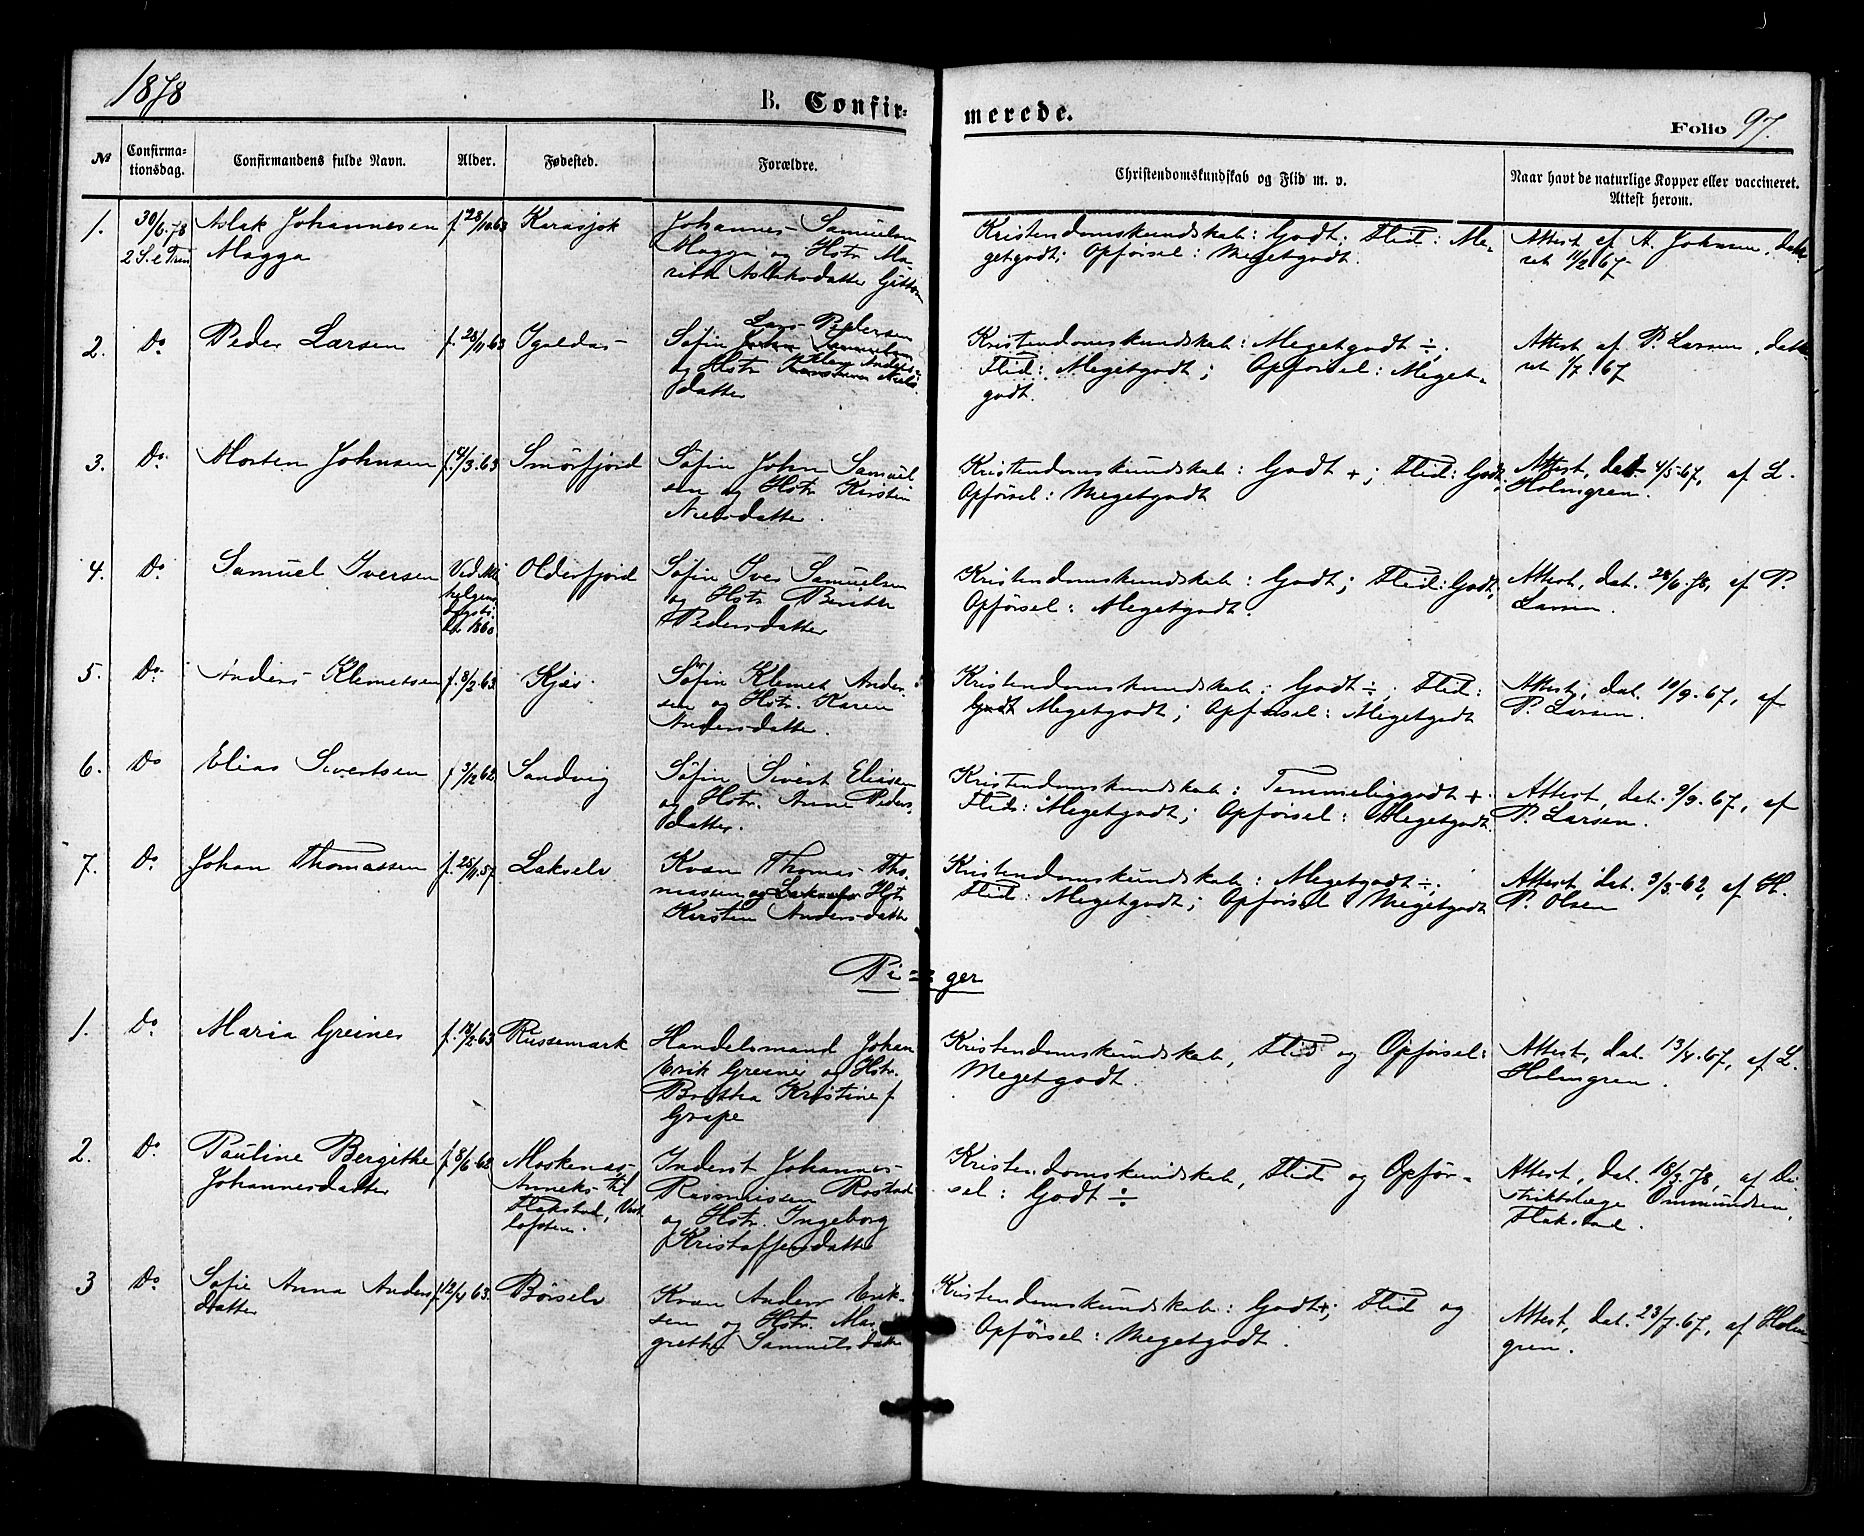 1878
B. Confir-
merede.
Folio 97.
№ Confirma-
tionsdag. Confirmandens fulde Navn. Alder. Fødested. Forældre. Christendomskundskab og Flid m. v. Naar havt de naturlige Kopper eller vaccineret.
Attest herom.
1. 30/6.78 Aslak Johannesen f. 28/10 63 Karasjok Johannes Samuelsen Kristendomskundskab: Godt; Flid: Me-
2 S. e Trin Magga Magga og Hstr. Ma-
rith Aslaksdatter Guttorm
getgodt; Opførsel: Megetgodt.
Attest af A. Johnsen, date-
ret 1/2 67
2. Do Peder Larsen f. 28/11 63 Igeldas Lars Pedersen
Søfin John Samuelsen
og Hstr. Ellen Anders-
Kirstine Niels-
datter
Kristendomskundskab: Megetgodt ÷;
Flid: Megetgodt; Opførsel: Meget-
godt.
Attest af P. Larsen, date-
ret 1/7 67
3. Do Morten Johnsen f. 4/3.63 Smørfjord Søfin John Samuel
sen og Hstr. Kirstin
Nielsdatter.
Kristendomskundskab: Godt +; Flid: Godt;
Opførsel: Megetgodt
Attest, dat 4/5-67, af L.
Holmgren.
4. Do Samuel Iversen Ved Mi-
kelsens
Olderfjord Søfin Iver Samuelsen
og Hstr. Berithe
Pedersdatter
Kristendomskundskab: Godt; Flid: Godt;
Opførsel: Megetgodt.
Attest, dat. 28/6.78, af P.
Larsen.
5. Do Anders Klemetsen f. 8/2.63 Kjæs Søfin Klemet Ander-
sen og Hstr. Karen
Andersdatter.
Kristendomskundskab: Godt ÷. Flid:
Godt Megetgodt; Opførsel: Megetgodt
Attest, dat. 10/9.67, af
P. Larsen.
6. Do Elias Sivertsen f 3/12 62 Sandvig Søfin Sivert Eliasen
og Hstr. Anne Peders-
datter.
Kristendomskundskab: Temmeliggodt +.
Flid: Megetgodt; Opførsel: Megetgodt.
Attest, dat. 9/9.67, af
P. Larsen.
7. Do Johan Thomassen f. 25/11.57 Lakselv Kvæn Thomas Tho-
massen og Lakselv Hstr.
Kirsten Andersdatter
Kristendomskundskab: Megetgodt ÷;
Flid: Megetgodt; Opførsel Megetgodt
Attest dat. 3/3-62, af H.
P. Olsen
Pi=ger
1. Do Maria Greines f. 18/2 63 Russemark Handelsmand Johan
Erik Greiner og Hstr.
Britha Kristine f
Grape
Kristendomskundskab, Flid og Opførsel:
Megetgodt.
Attest, dat. 13/4.67, af L.
Holmgren.
2. Do Pauline Bergithe
Johannesdatter
f. 8/6 62 Moskenæs-
Anneks til
Flakstad, Vest
lofoten.
Inderst Johannes
Rasmussen Rostad
og Hstr. Ingeborg
Kristoffersdatter
Kristendomskundskab, Flid og Opfør-
sel: Godt ÷
Attest, dat. 18/3.78, af Di
striktslæge Ommundsen,
Flakstad.
3 Do Sofie Anna Anders
datter
f. 12/4 63. Börselv Kvæn Anders Erik-
sen og Hstr. Mar
grethe Samuelsdatter
Kristendomskundskab: Godt +; Flid og
Opførsel: Megetgodt.
Attest, dat. 23/7.67, af Holm
gren.